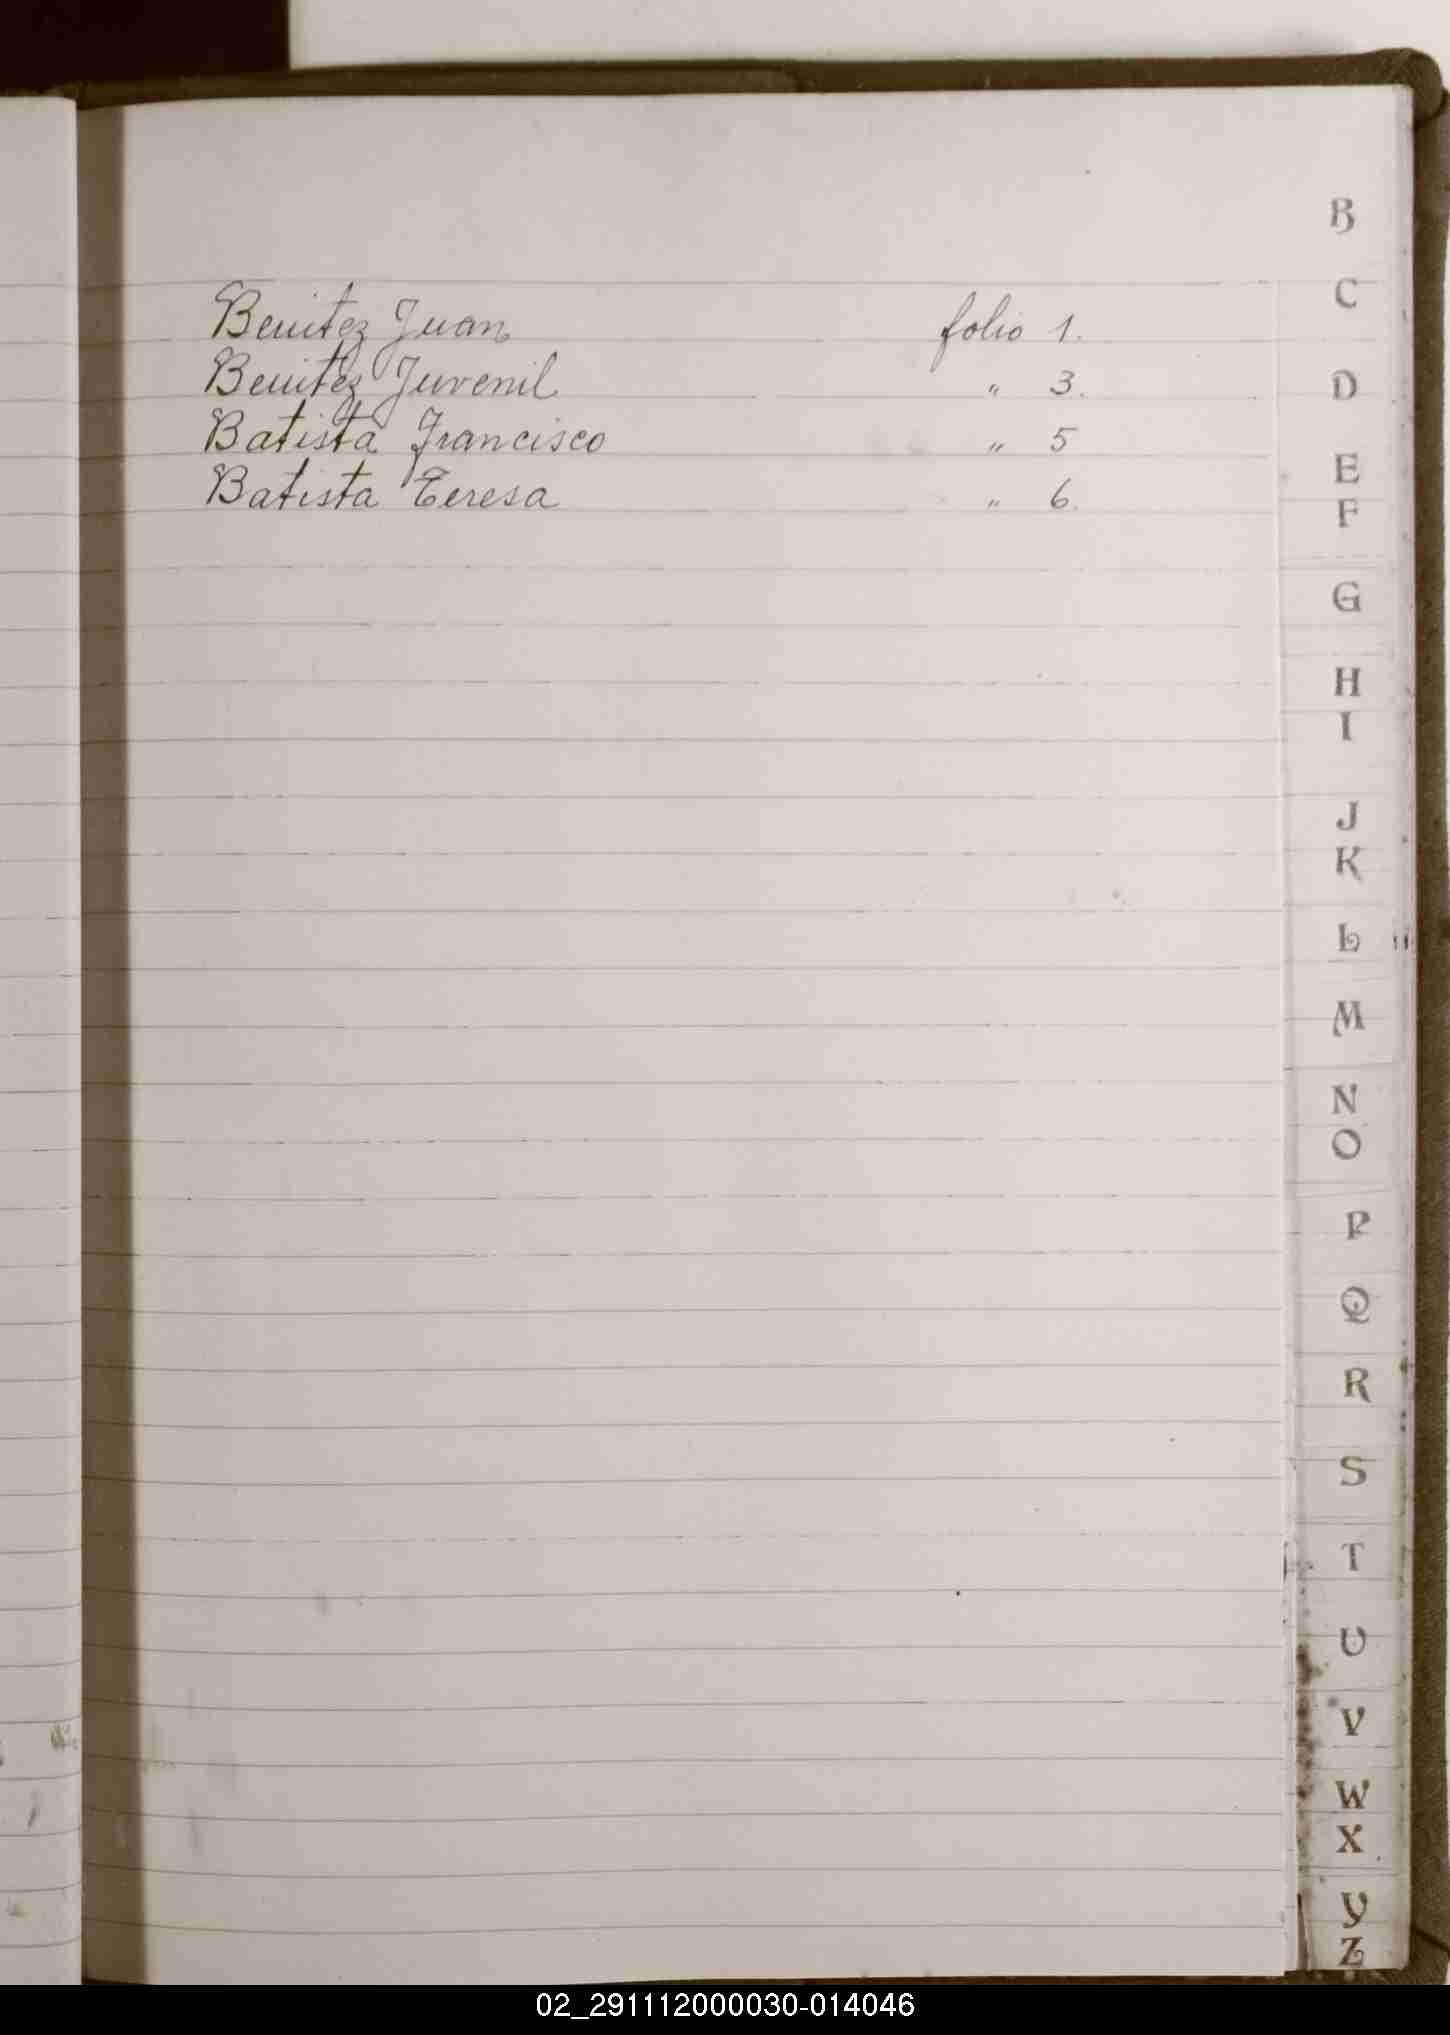 Benitez Juan folio 1.
Benitez Juvenil " 3.
Batista Francisco " 5
Batista Teresa " 6.
B
C
D
E
F
G
H
I
J
K
L
M
N
O
P
Q
R
S
T
U
V
W
X
Y
Z
02_291112000030-014046